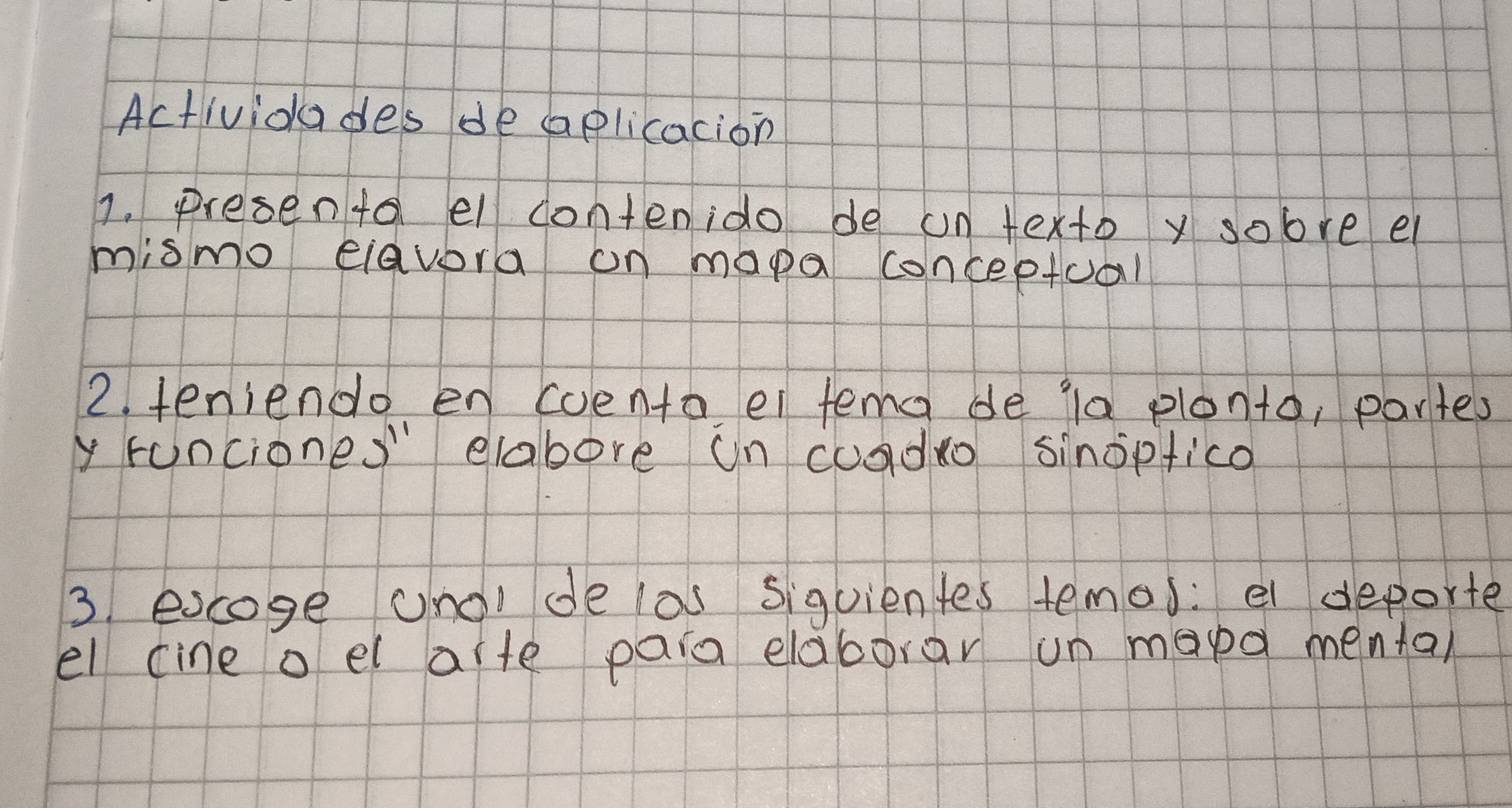 Actividades de aplicación
1. Presenta el contenido de un texto y sobre el
mismo elavora un mapa conceptual
2. teniendo en cuenta el tema de "la planta, partes
y funciones" elabore un cuadro sinóptico
3. escoge una de las siguientes temas: el deporte
el cine o el arte para elaborar un mapa mental